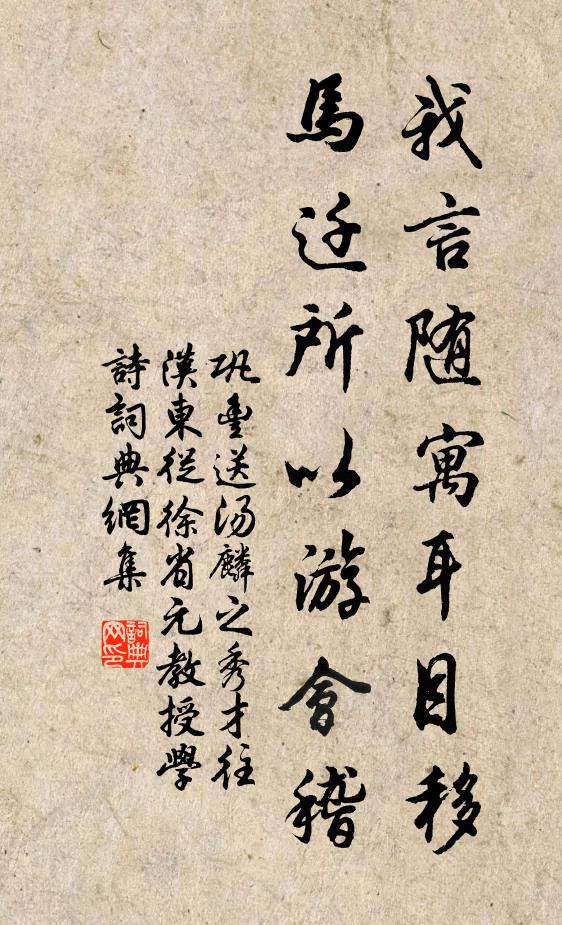 我言随寓耳目移
馬迁所以游會稽
巩豊送湯麟之秀才往
漢東從徐省元教授學
詩詞典網集
詞典網印